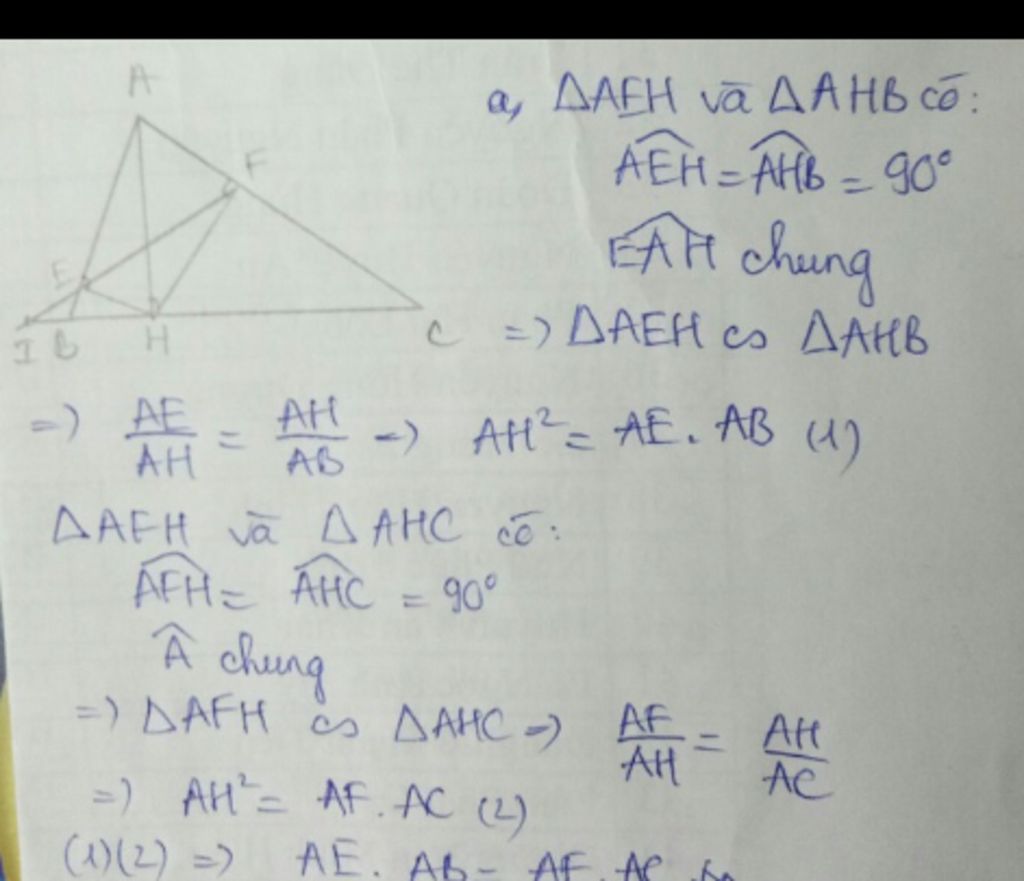 A
F
E
I B H C
a, ΔAEH và ΔAHB có:
\widehat{AEH} = \widehat{AHB} = 90°
\widehat{EAH} chung
=> ΔAEH ∽ ΔAHB
=> AE/AH = AH/AB => AH² = AE. AB (1)
ΔAFH và ΔAHC có:
\widehat{AFH} = \widehat{AHC} = 90°
\widehat{A} chung
=> ΔAFH ∽ ΔAHC => AF/AH = AH/AC
=> AH² = AF. AC (2)
(1)(2) => AE. AB = AF. AC